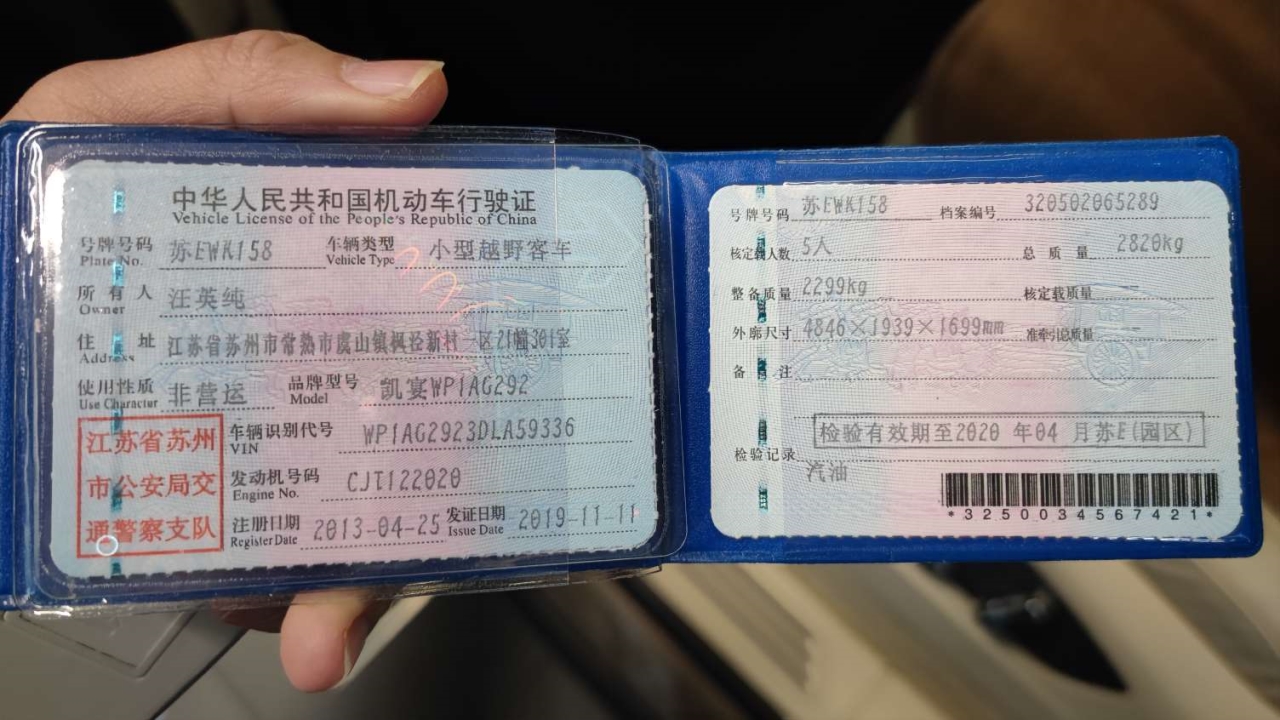 中华人民共和国机动车行驶证
Vehicle License of the People's Republic of China
号牌号码 苏EWK158 车辆类型 小型越野客车
Plate No. Vehicle Type
所有人 汪英纯
Owner
住址 江苏省苏州市常熟市虞山镇枫泾新村一区21幢301室
Address
使用性质 非营运 品牌型号 凯宴WP1AG292
Use Character Model
江苏省苏州
市公安局交
通警察支队
车辆识别代号 WP1AG2923DLA59336
VIN
发动机号码 CJT122020
Engine No.
注册日期 2013-04-25 发证日期 2019-11-11
Register Date Issue Date
号牌号码 苏EWK158 档案编号 320502065289
核定载人数 5人 总质量 2820kg
整备质量 2299kg 核定载质量
外廓尺寸 4846×1939×1699mm 准牵引总质量
备注
检验有效期至2020 年04 月苏E(园区)
检验记录
汽油
*3250034567421*